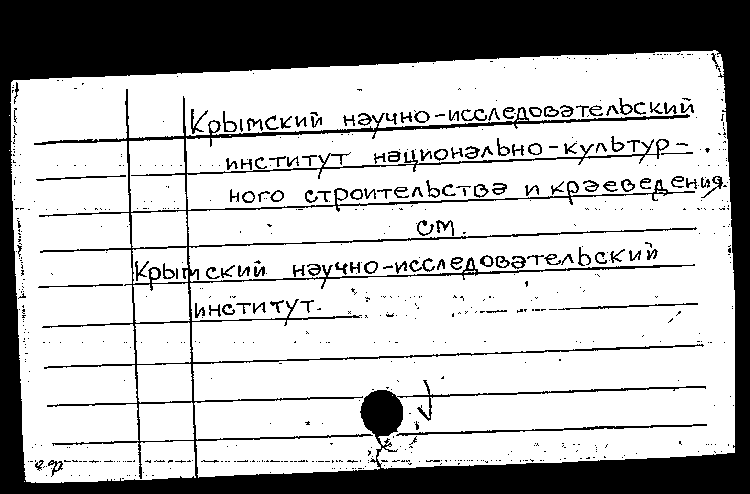 Крымский научно-исследовательский
институт национально-культур-
ного строительства и краеведения.
см.
Крымский научно-исследовательский
институт.